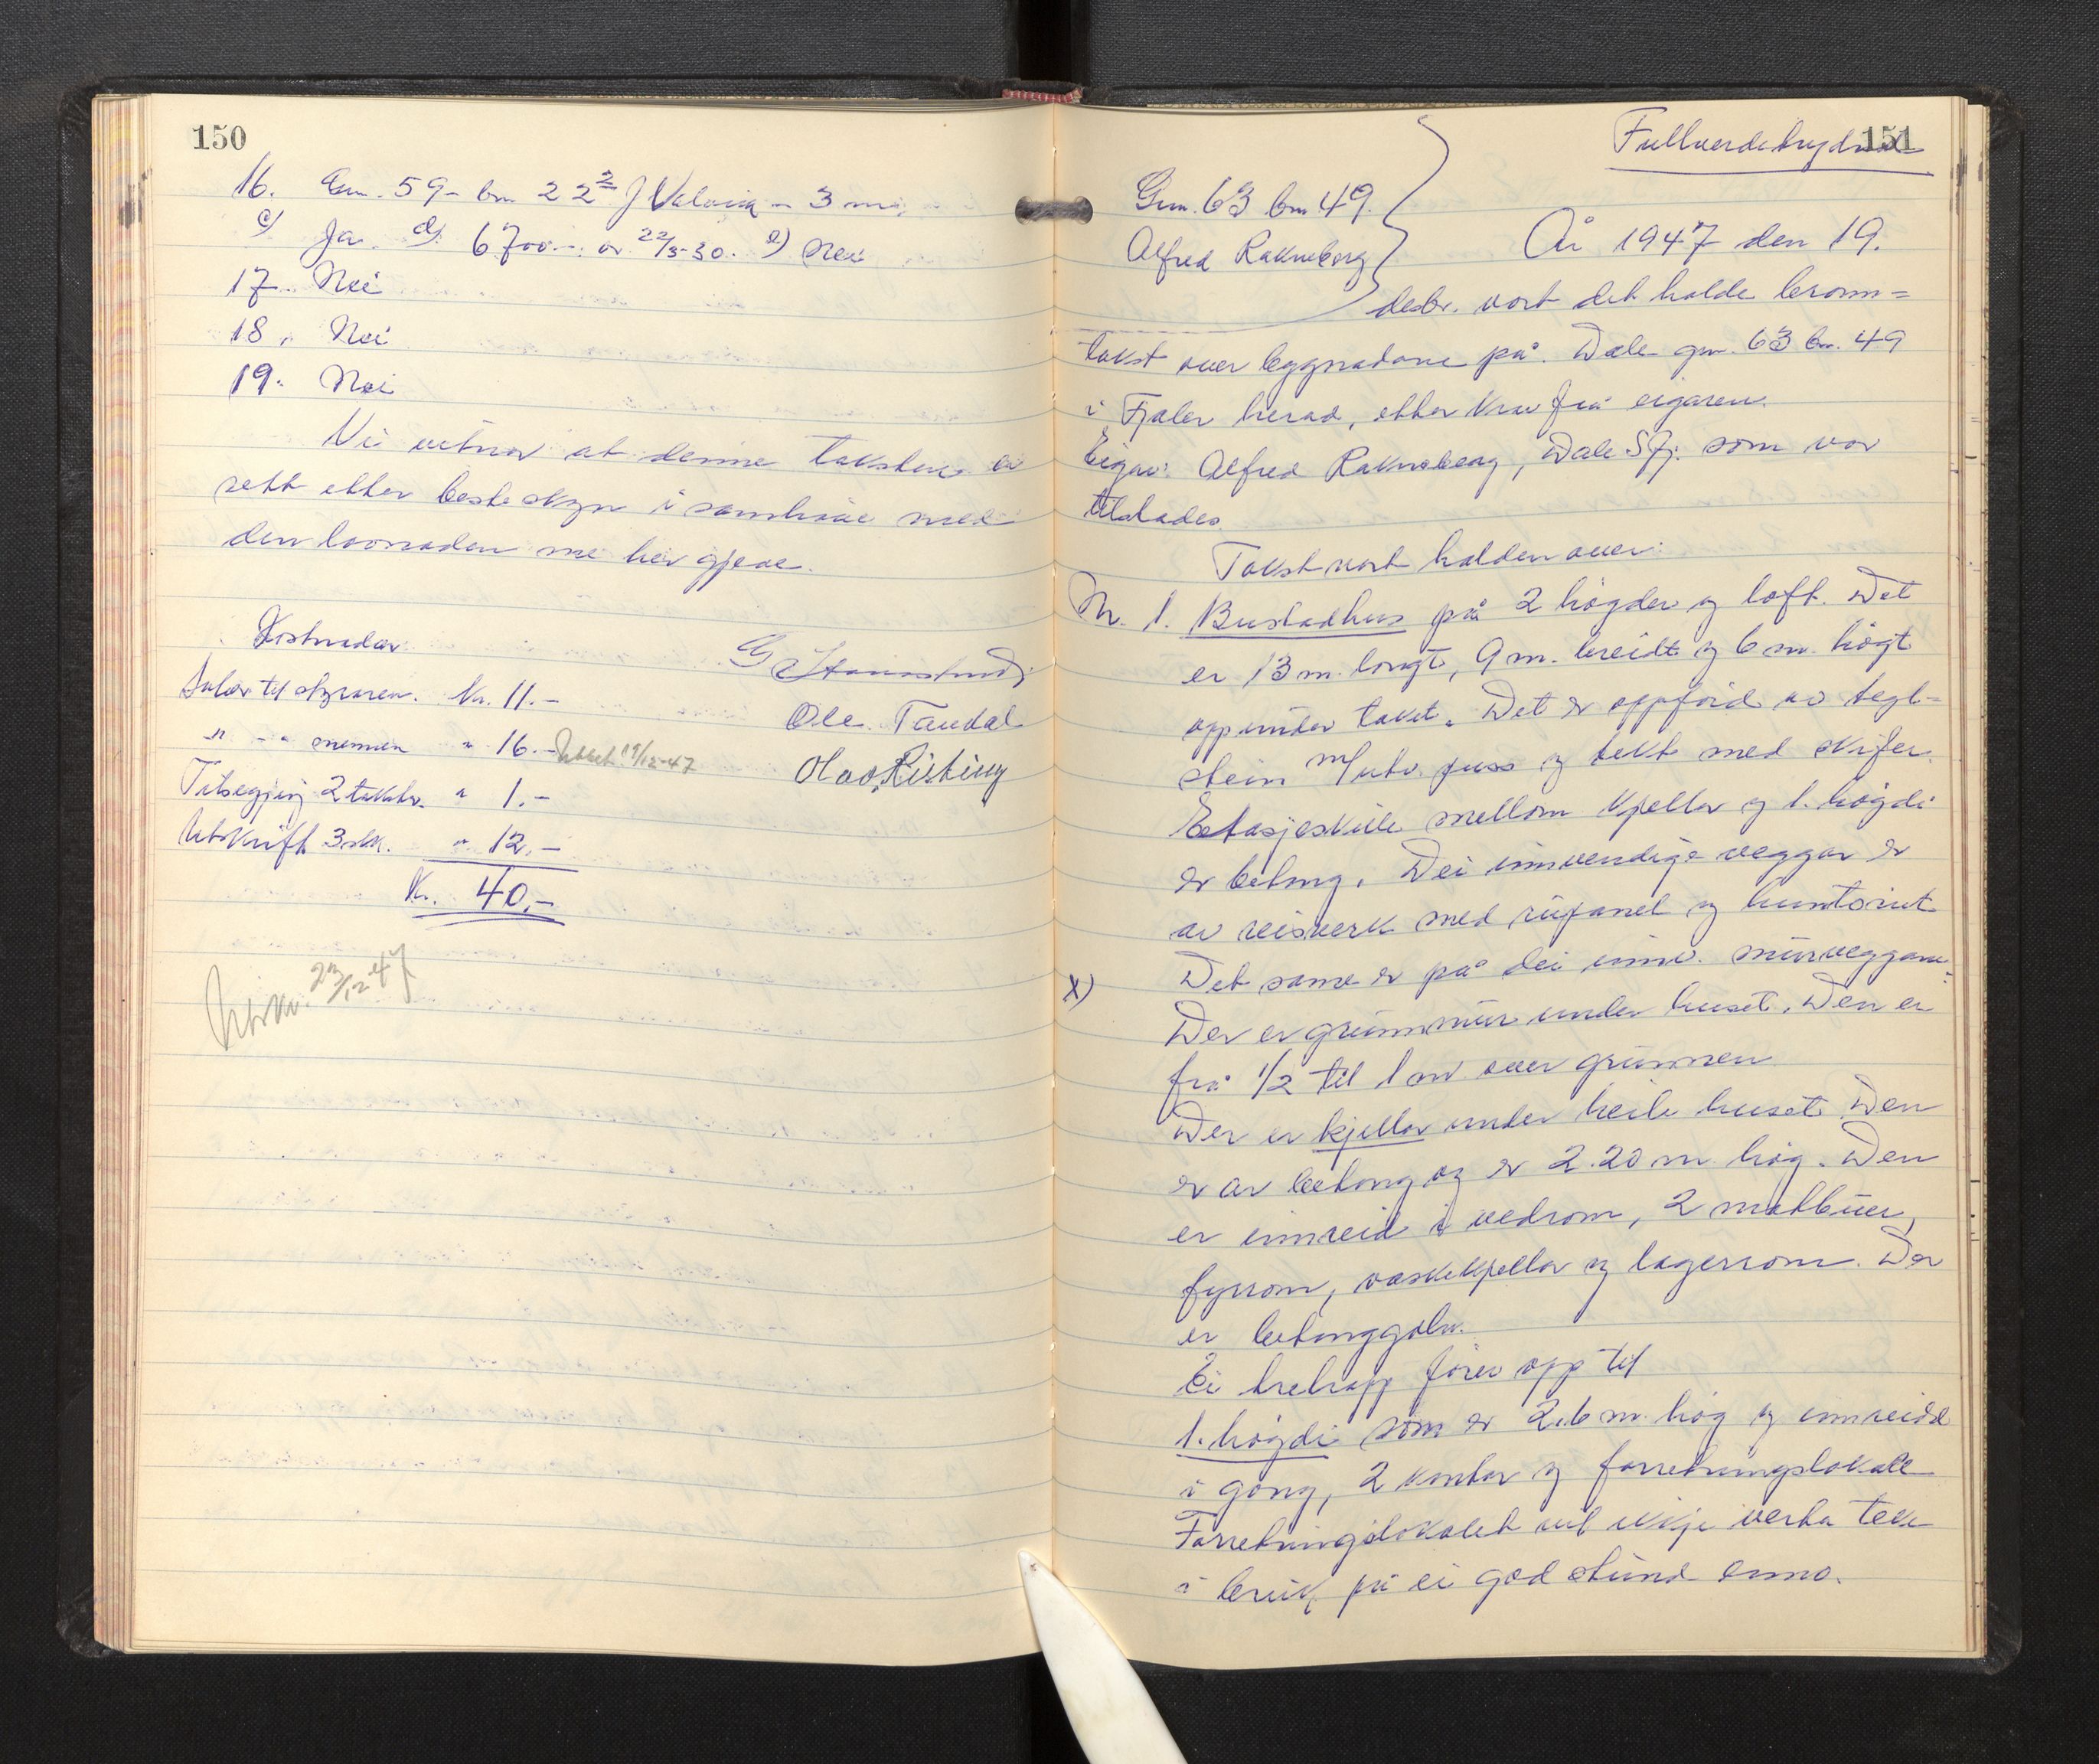 150
16. Gnr. 59 - bnr. 22² J Valvik - 3 m
c) Ja. d) 6700.- av 22/3-30. e) Nei
17. Nei
18. Nei
19. Nei
Vi vitnar at denne taksten er
sett etter beste skyn i samhøve med
den lovnaden me her gjeve.
Kostnadar
Salær til styraren. Kr. 11.-
" - " mennen " 16.- Utbet. 19/12-47
Tilsegjing 2 takstm. " 1.-
Utskrift 3 stk. " 12.-
Kr. 40.-
Ole Taudal
Olav Risting
Utskr. 23/12 47
151
Fullverdebrygd
Gnr. 63 bnr 49.
Alfred Rakneberg
År 1947 den 19.
desbr. vart det halde brann=
takst over bygnadane på Dale gnr. 63 bnr. 49
i Fjaler herad, etter krav frå eigaren.
Eigar: Alfred Rakneberg, Dale Sfj. som var
tilstades
Takst vart halden over:
Nr. 1. Bustadhus på 2 høgder og loft. Det
er 13 m. langt, 9 m. breidt og 6 m. høgt
opp under taket. Det er oppførd av tegl-
stein m/utv. puss og tekt med skifer.
Etasjeskile mellom kjellar og 1. høgdi
er betong. Dei innvendige veggar er
av reisverk med rupanel og huntonit
Det same er på dei innv. murveggane.
X)
Der er grunnmur under huset. Den er
frå 1/2 til 1 m over grunnen
Der er kjellar under heile huset. Den
er av betong og er 2.20 m høg. Den
er innreid i vedrom, 2 matbuer,
fyrrom, vaskekjellar og lagerrom. Der
er betonggolv.
Ei tretrapp fører opp til
1. høgdi som er 2.6 m. høg og innreidd
i gang, 2 kontor og forretningslokale
Forretningslokalet vil ikkje verta teke
i bruk på ei god stund enno.